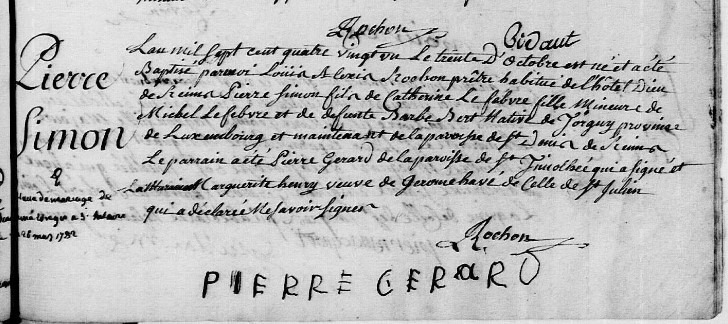 Rochon
Bidaut
Pierre
Simon
L'an mil sept cent quatre vingt un Le trente D'Octobre est né et a été
Baptisé par moi Louis Alexis Rochon prêtre habitué de l'hôtel Dieu
de Reims Pierre Simon fils de Catherine Le febvre fille Mineure de
Michel Lefebvre et de defunte Barbe Bort Native de province
de Luxembourg et maintenant de la paroisse de St Denis de Reims
Le parrain a été Pierre Gerard de la paroisse de St Timothée qui a signé et
La Marguerite henry veuve de Gerome havé de Celle de St Julien
qui a déclaré Ne savoir signer
mariage de
a St hilaire
mars 1782
Rochon
PIERRE GERARD